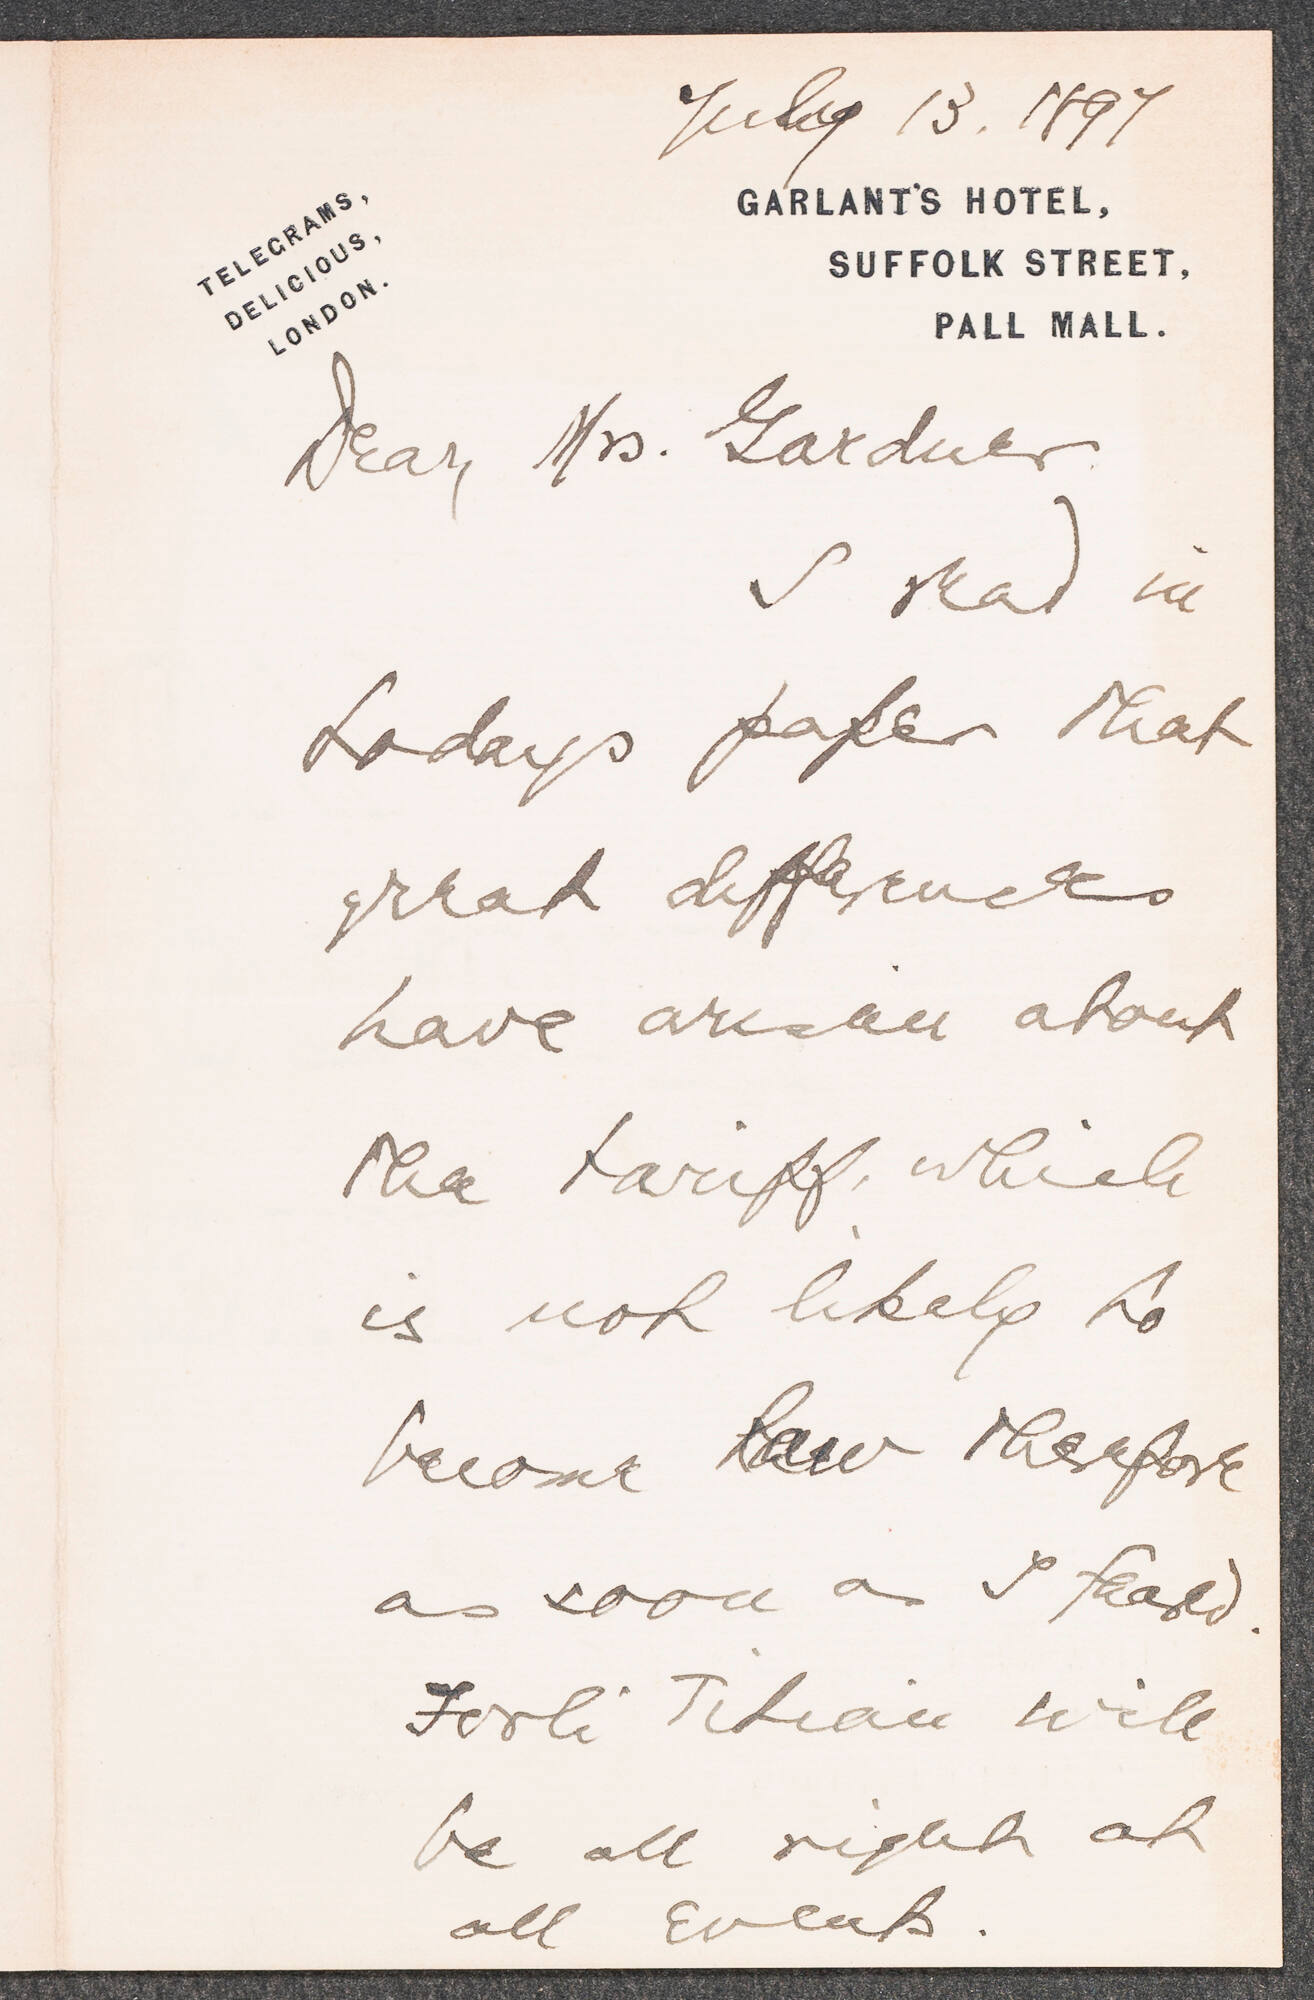 July 13. 1897
TELEGRAMS,
DELICIOUS,
LONDON.
GARLANT'S HOTEL,
SUFFOLK STREET,
PALL MALL.
Dear Mrs. Gardner
I read in
todays paper that
great differences
have arisen about
the tariff, which
is not likely to
become law therefore
as soon as I feared.
Forli Titian will
be all right at
all events.